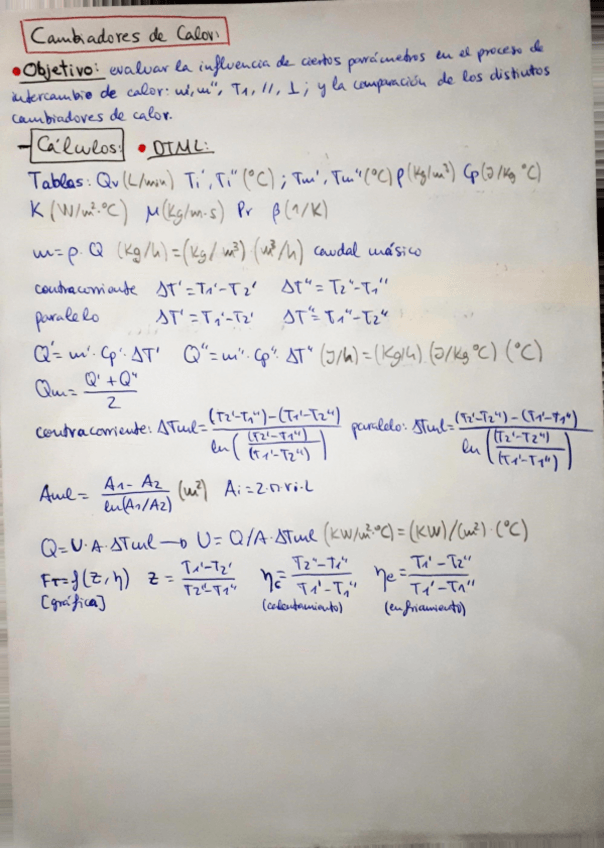 Cambiadores de Calor:
• Objetivo: evaluar la influencia de ciertos parámetros en el proceso de
intercambio de calor: m', m'', T1, //, ⊥; y la comparación de los distintos
cambiadores de calor.
- Cálculos: • DTML:
Tablas: Qv (L/min) Ti', Ti'' (°C); Tm', Tm'' (°C) ρ (kg/m³) Cp (J/kg °C)
K (W/m²·°C) μ (kg/m·s) Pr β (1/K)
m = ρ·Q (kg/h) = (kg/m³)·(m³/h) caudal másico
contracorriente ΔT' = T1'-T2' ΔT'' = T2''-T1''
paralelo ΔT' = T1'-T2' ΔT'' = T1''-T2''
Q' = m'·Cp'·ΔT' Q'' = m''·Cp''·ΔT'' (J/h) = (kg/h)·(J/kg °C)·(°C)
Qm = (Q' + Q'')/2
contracorriente: ΔTml = ((T2'-T1'') - (T1'-T2''))/ln((T2'-T1'')/(T1'-T2'')) paralelo: ΔTml = ((T2'-T2'') - (T1'-T1''))/ln((T2'-T2'')/(T1'-T1''))
Aml = (A1 - A2)/ln(A1/A2) (m²) Ai = 2·π·ri·L
Q = U·A·ΔTml → U = Q/A·ΔTml (KW/m²·°C) = (KW)/(m²)·(°C)
FT = f(Z, η) Z = (T1'-T2')/(T2''-T1'') ηc = (T2''-T1'')/(T1'-T1'') ηe = (T1'-T2'')/(T1'-T1'')
[gráfica] (calentamiento) (enfriamiento)